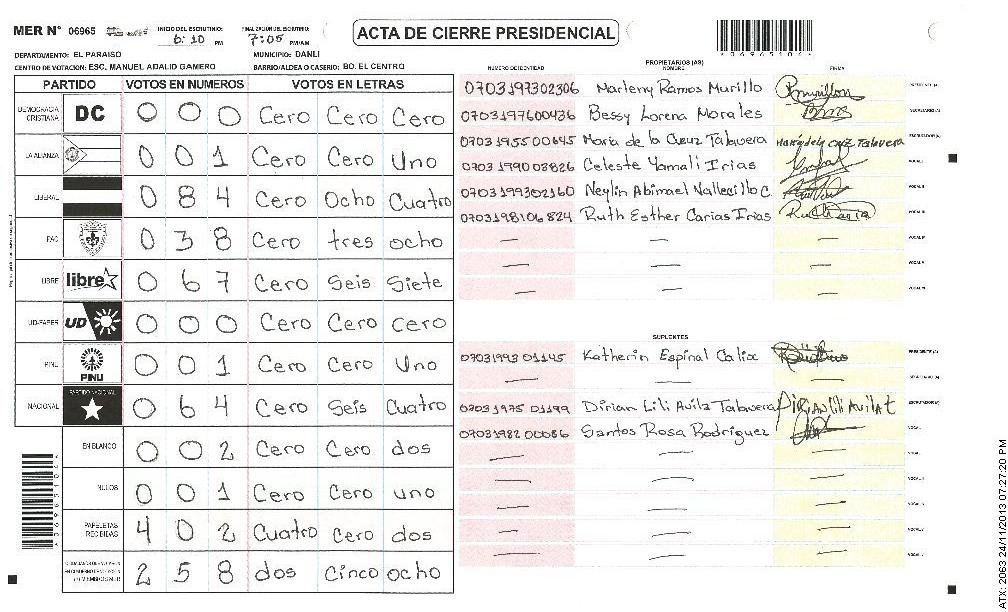 MER N° 06965 INICIO DEL ESCRUTINIO: 6:10 PM FINALIZACIÓN DEL ESCRUTINIO: 7:05 PM/AM ACTA DE CIERRE PRESIDENCIAL
DEPARTAMENTO: EL PARAISO MUNICIPIO: DANLI
CENTRO DE VOTACION: ESC. MANUEL ADALID GAMERO BARRIO/ALDEA O CASERIO: BO. EL CENTRO
PARTIDO VOTOS EN NUMEROS VOTOS EN LETRAS
DEMOCRACIA CRISTIANA DC 0 0 0 Cero Cero Cero
LA ALIANZA 0 0 1 Cero Cero Uno
LIBERAL 0 8 4 Cero Ocho Cuatro
PAC 0 3 8 Cero tres ocho
LIBRE libre 0 6 7 Cero Seis Siete
UD-FAPER UD 0 0 0 Cero Cero cero
PINU PINU 0 0 1 Cero Cero Uno
NACIONAL PARTIDO NACIONAL 0 6 4 Cero Seis Cuatro
EN BLANCO 0 0 2 Cero Cero dos
NULOS 0 0 1 Cero Cero uno
PAPELETAS RECIBIDAS 4 0 2 Cuatro Cero dos
2 5 8 dos Cinco ocho
PROPIETARIOS (AS)
NUMERO DE IDENTIDAD NOMBRE FIRMA
0703197302306 Marleny Ramos Murillo PRESIDENTE (A)
0703197600436 Bessy Lorena Morales SECRETARIO (A)
0703195500645 Maria de la Cruz Talavera ESCRUTADOR (A)
0703199003826 Celeste Yamali Irias VOCAL I
0703199302160 Neylin Abimael Vallecillo C. VOCAL II
0703198106824 Ruth Esther Carias Irias VOCAL III
— — — VOCAL IV
— — — VOCAL V
— — — VOCAL VI
SUPLENTES
0703199301145 Katherin Espinal Calix PRESIDENTE (A)
— — — SECRETARIO (A)
0703197501199 Dirian Lili Avila Talavera Dirian Lili Avila T ESCRUTADOR (A)
0703198200086 Santos Rosa Rodriguez VOCAL I
ATX: 2063 24/11/2013 07:27:20 PM